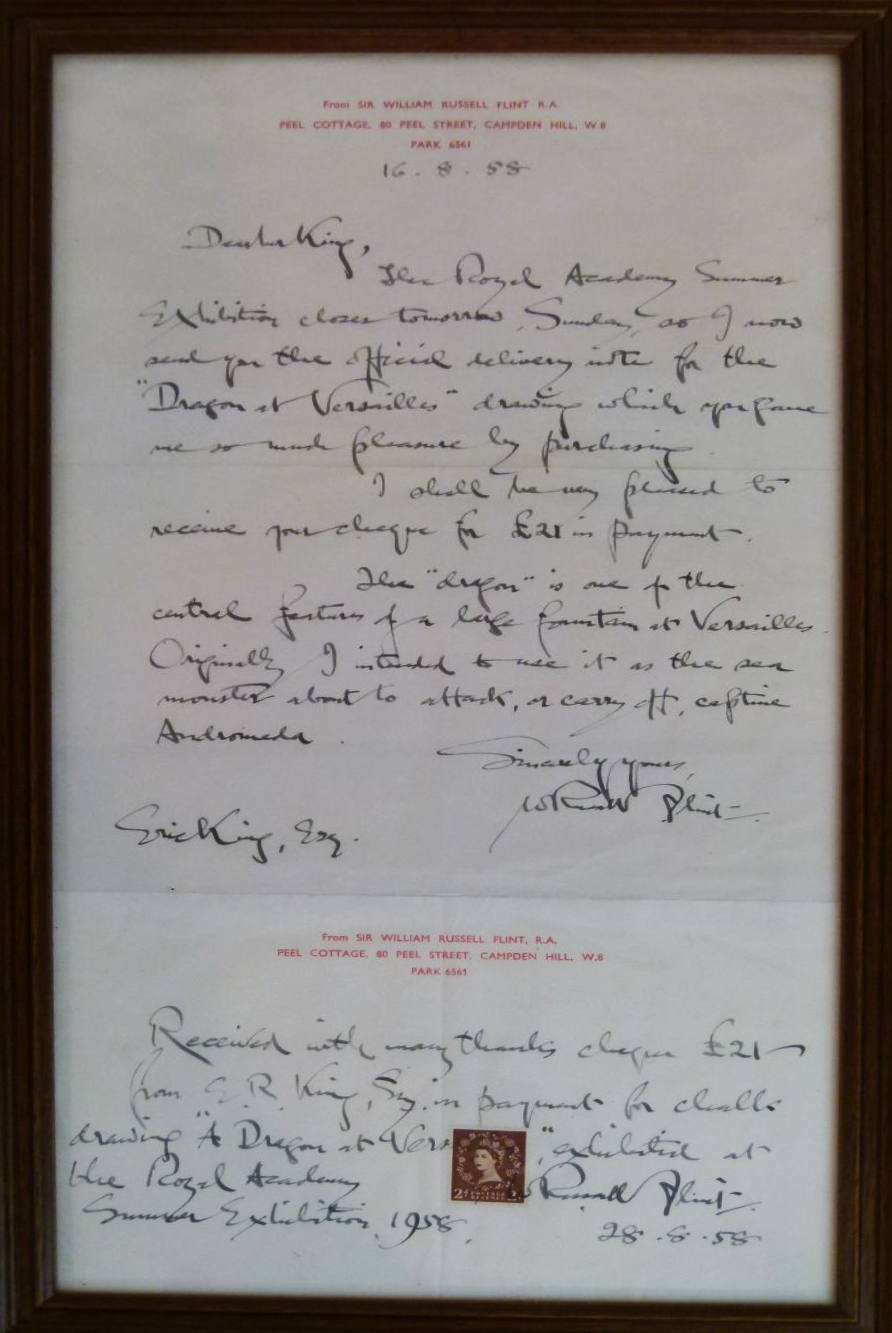 From SIR WILLIAM RUSSELL FLINT R.A
PEEL COTTAGE, 80 PEEL STREET, CAMPDEN HILL, W.8
PARK 6561
16 . 8 . 58
Dear Mr King,
The Royal Academy Summer
Exhibition closes tomorrow, Sunday, so I now
send you the official delivery note for the
"Dragon at Versailles" drawing which you gave
me so much pleasure by purchasing
I shall be very pleased to
receive your cheque for £21 in payment.
The "dragon" is one of the
central features of a large fountain at Versailles.
Originally I intended to use it as the sea
monster about to attack, or carry off, captive
Andromeda.
Sincerely yours,
W Russell Flint
Eric King, Esq.
From SIR WILLIAM RUSSELL FLINT, R.A.
PEEL COTTAGE, 80 PEEL STREET, CAMPDEN HILL, W.8
PARK 6561
Received with many thanks cheque £21
from E.R. King, Esq. in payment for chalk
drawing "A Dragon at Vers", exhibited at
the Royal Academy W Russell Flint
Summer Exhibition, 1958.
28 . 8 . 58